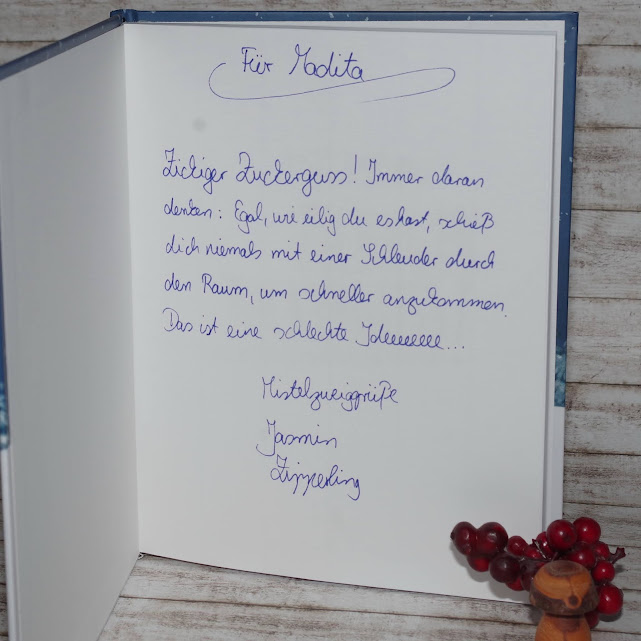 Für Madita
Zickiger Zuckerguss! Immer daran
denken: Egal, wie eilig du es hast, schieß
dich niemals mit einer Schleuder durch
den Raum, um schneller anzukommen.
Das ist eine schlechte Ideeeeeee...
Mistelzweiggrüße
Jasmin
Zipperling